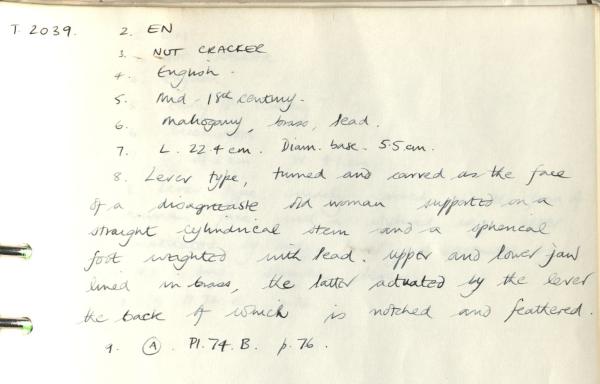 T. 2039. 2. EN
3. NUT CRACKER
4. English.
5. Mid - 18th century.
6. Mahogany, brass, lead.
7. L. 22.4 cm. Diam. base. 5.5 cm.
8. Lever type, turned and carved as the face
of a disagreeable old woman supported on a
straight cylindrical stem and a spherical
foot weighted with lead. upper and lower jaw
lined in brass, the latter actuated by the lever
the back of which is notched and feathered.
9. A. Pl. 74. B. p. 76.